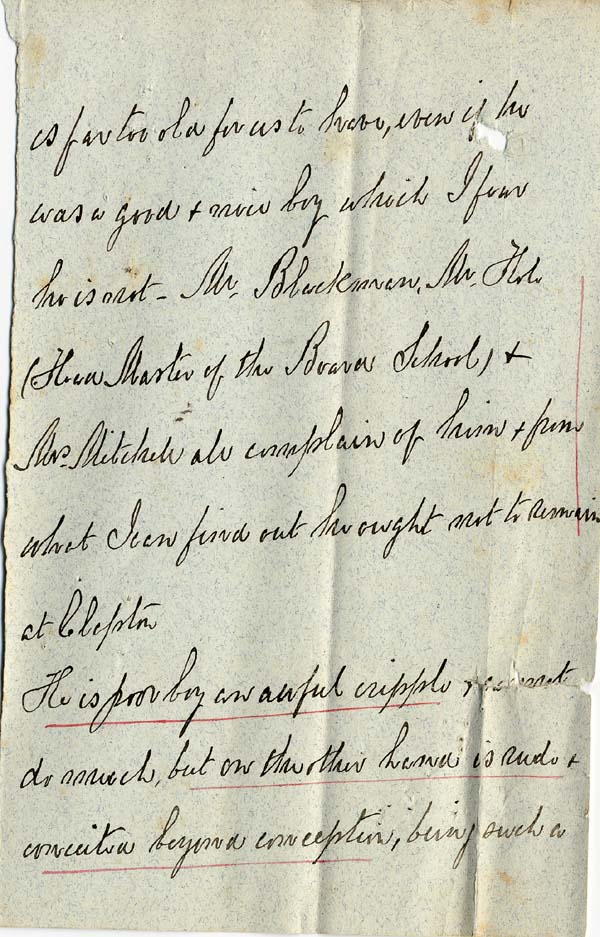 is far too old for us to have, even if he
was a good + nice boy which I fear
he is not - Mr. Blackman, Mr. Hole
(Head Master of the Board School) +
Mrs. Mitchell all complain of him + from
what I can find out he ought not to remain
at Clapton
He is poor boy an awful cripple + cannot
do much, but on the other hand is rude +
conceited beyond conception, being such a